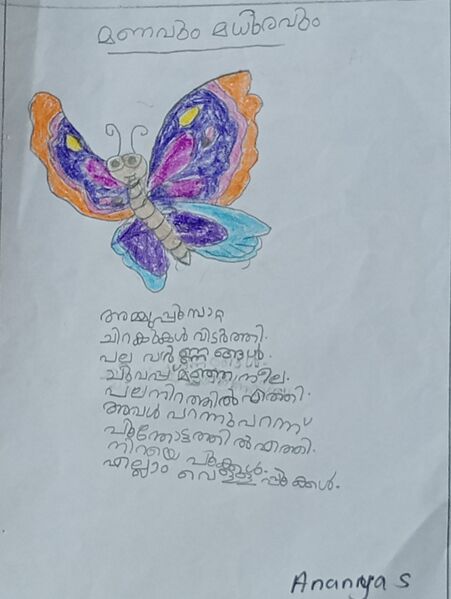 മണവും മധുരവും
അമ്മുപ്പൂമ്പാറ്റ
ചിറകുകൾ വിടർത്തി.
പല വർണ്ണങ്ങൾ.
ചുവപ്പ് മഞ്ഞ നീല.
പലനിറത്തിൽ എത്തി.
അവൾ പറന്നുപറന്ന്
പൂന്തോട്ടത്തിൽ എത്തി.
നിറയെ പൂക്കൾ.
എല്ലാം വെള്ളപ്പൂക്കൾ.
Ananya S